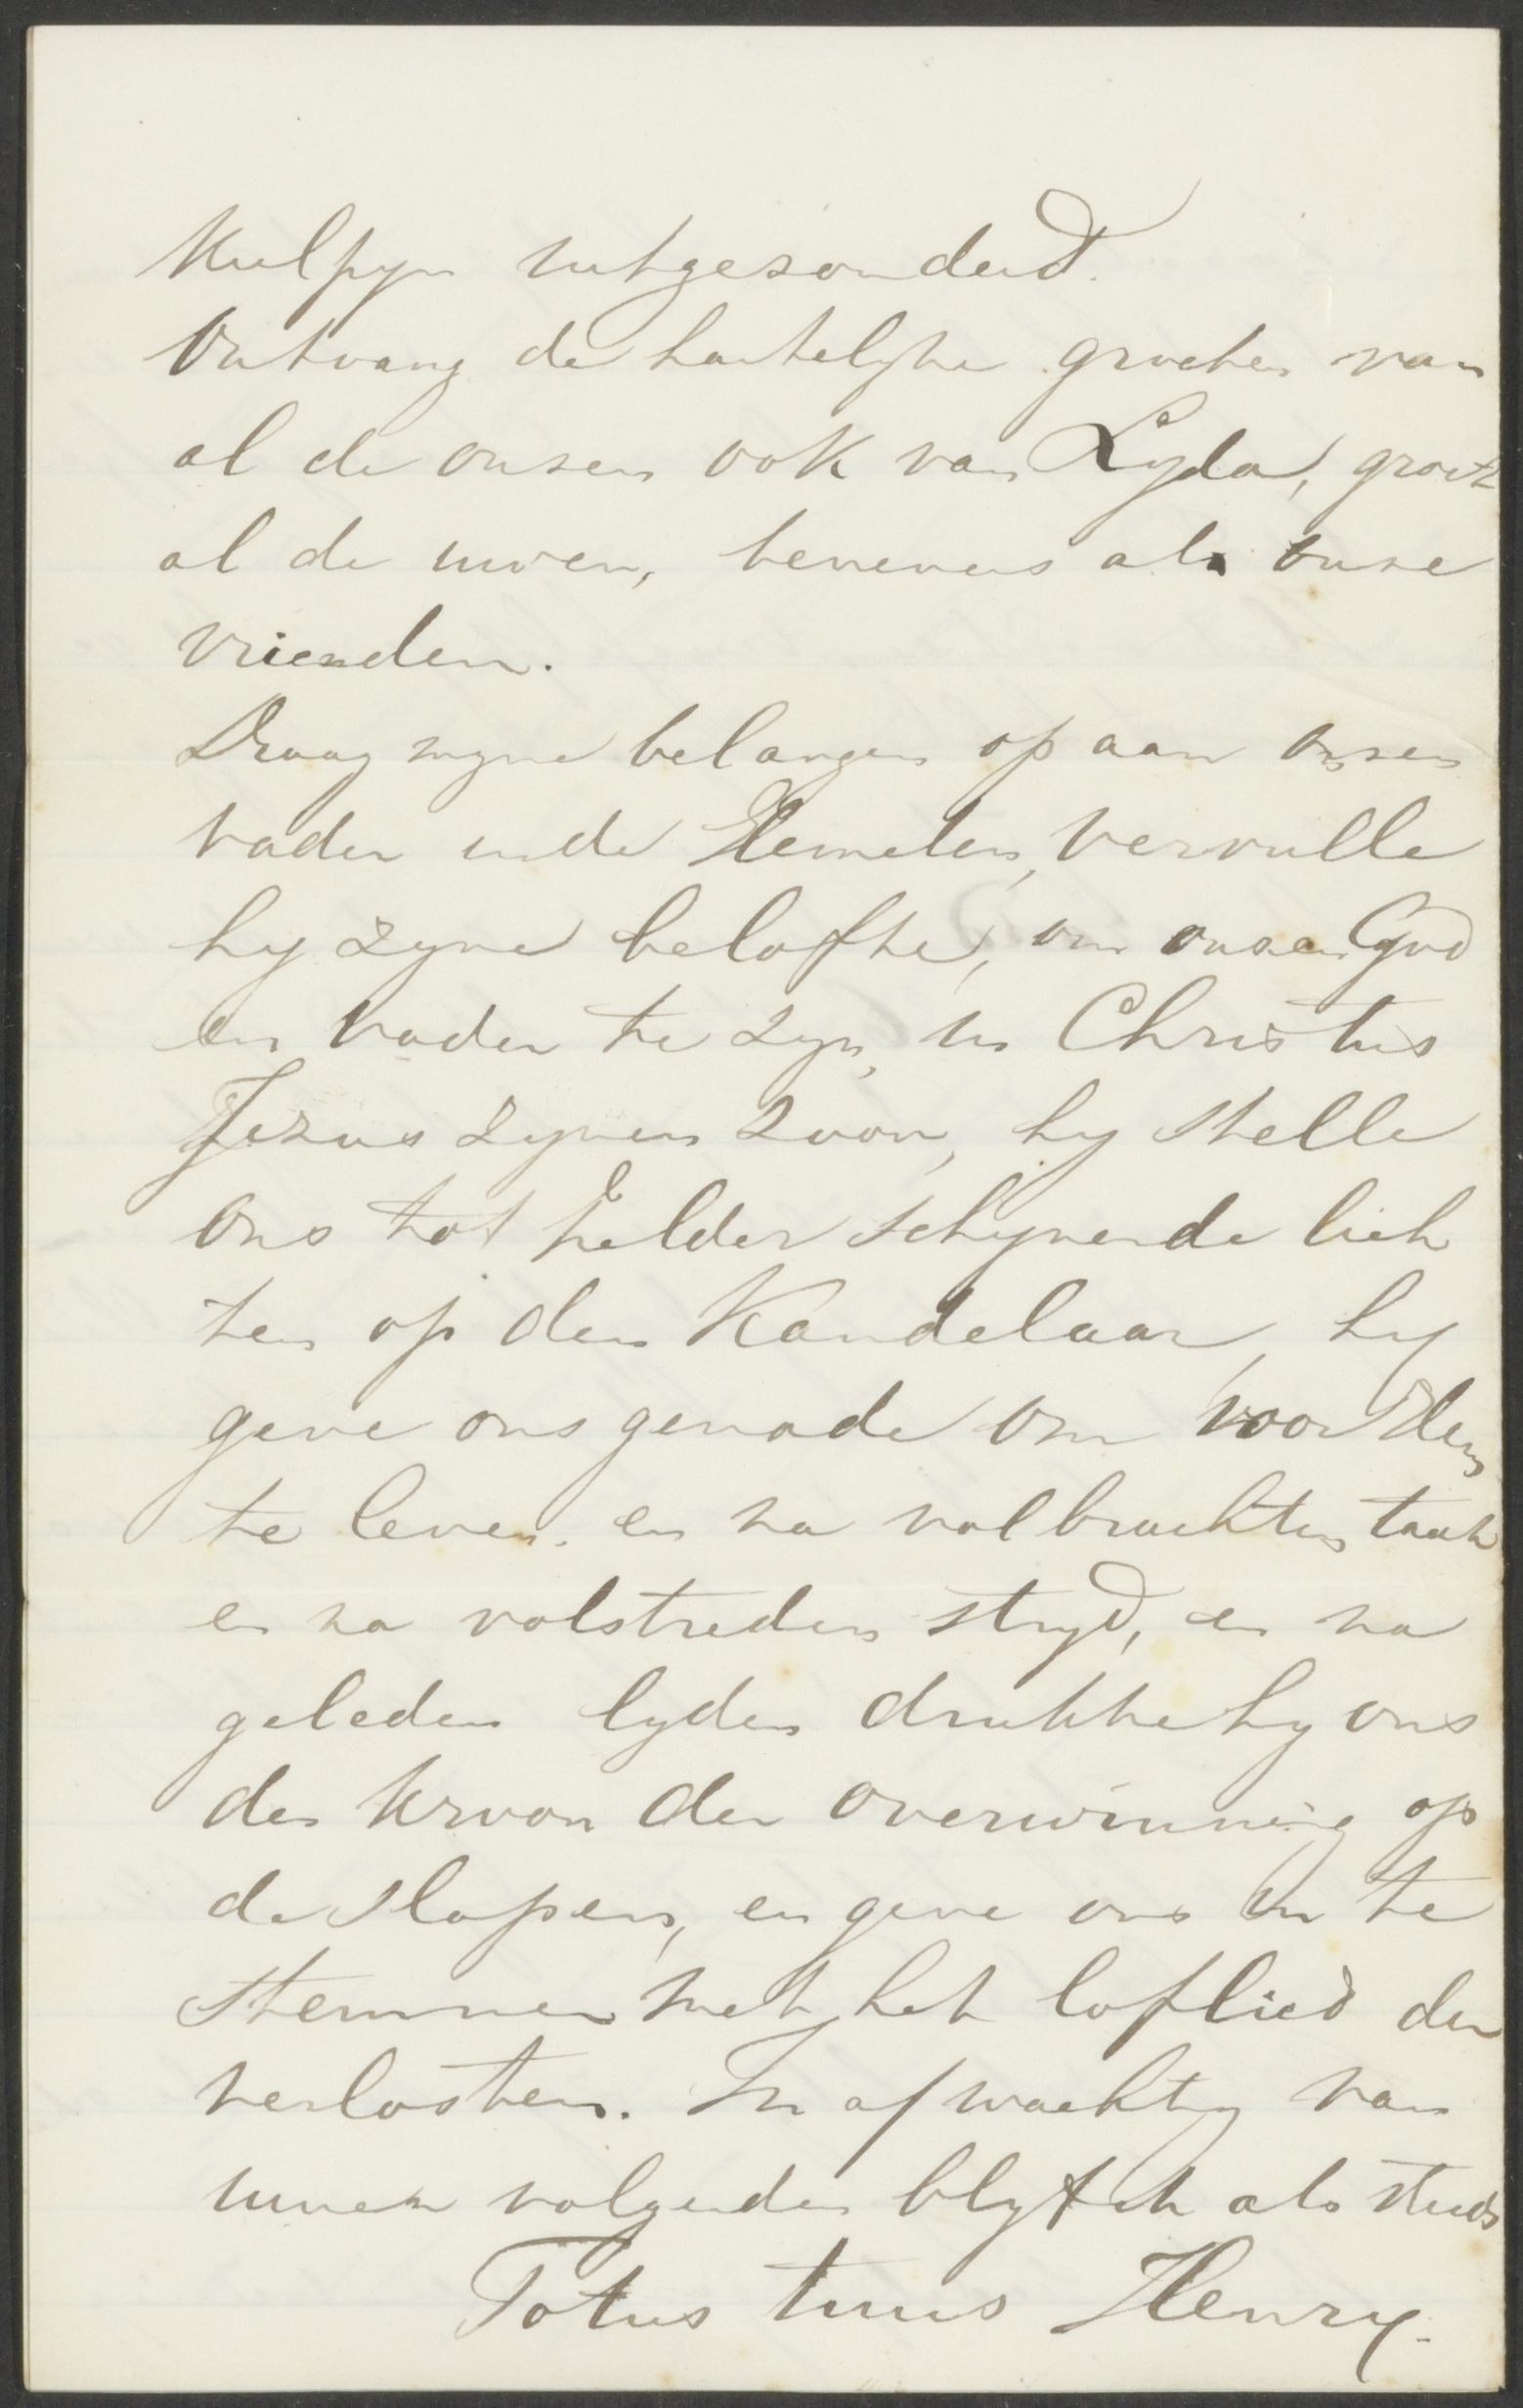 Kulpyn uitgezonderd.
Ontvang de hartelyke groeten van
al de onzen ook van Lyda, groet
al de uwen, benevens als onze
vrienden.
Draag myne belangen op aan onzen
vader in de Hemelen, vervulle
hy zyne belofte, om onzen God
en vader te zyn, in Christus
Jezus zynen Zoon, hy stelle
ons tot helder schynende lich
ten op den Kandelaar, hy
geve ons genade om voor Hem
te leven. en na volbrachten taak
en na volstreden stryd, en na
geleden lyden drukke hy ons
den Kroon der overwinning op
de slapen, en geve ons in te
stemmen met het loflied der
verlosten. In afwachting van
uwen volgenden blyf ik als steeds
Totus tuus Henry.